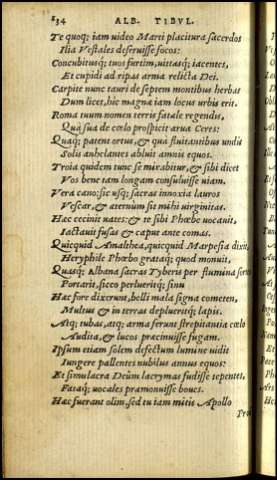 234 ALB. TIBVL.
Te quoq; iam video Marti placitura sacerdos
Ilia Vestales deseruisse focos:
Concubitusq; tuos furtim, uittasq; iacentes,
Et cupidi ad ripas arma relicta Dei.
Carpite nunc tauri de septem montibus herbas
Dum licet, hic magnæ iam locus urbis erit.
Roma tuum nomen terris fatale regendis,
Quà sua de cœlo prospicit arua Ceres:
Quaq; patent ortus, & qua fluitantibus undis
Solis anhelantes abluit amnis equos.
Troia quidem tunc se mirabitur, & sibi dicet
Vos bene tam longam consuluisse uiam.
Vera cano: sic usq; sacras innoxia lauros
Vescar, & æternum sit mihi uirginitas.
Hæc cecinit uates: & te sibi Phœbe uocauit,
Iactauit fusas & caput ante comas.
Quicquid Amalthea, quicquid Marpesia dixit,
Heryphile Phœbo grataq; quod monuit,
Quasq; Albana sacras Tyberis per flumina sortes
Portarit, sicco perlueritq; sinu
Hæc fore dixerunt, belli mala signa cometen,
Multus & in terras deplueritq; lapis.
Atq; tubas, atq; arma ferunt strepitantia cœlo
Audita, & lucos præcinuisse fugam.
Ipsum etiam solem defectum lumine uidit
Iungere pallentes nubilus annus equos:
Et simulacra Deûm lacrymas fudisse tepentes,
Fataq; uocales præmonuisse boues.
Hæc fuerant olim, sed tu iam mitis Apollo